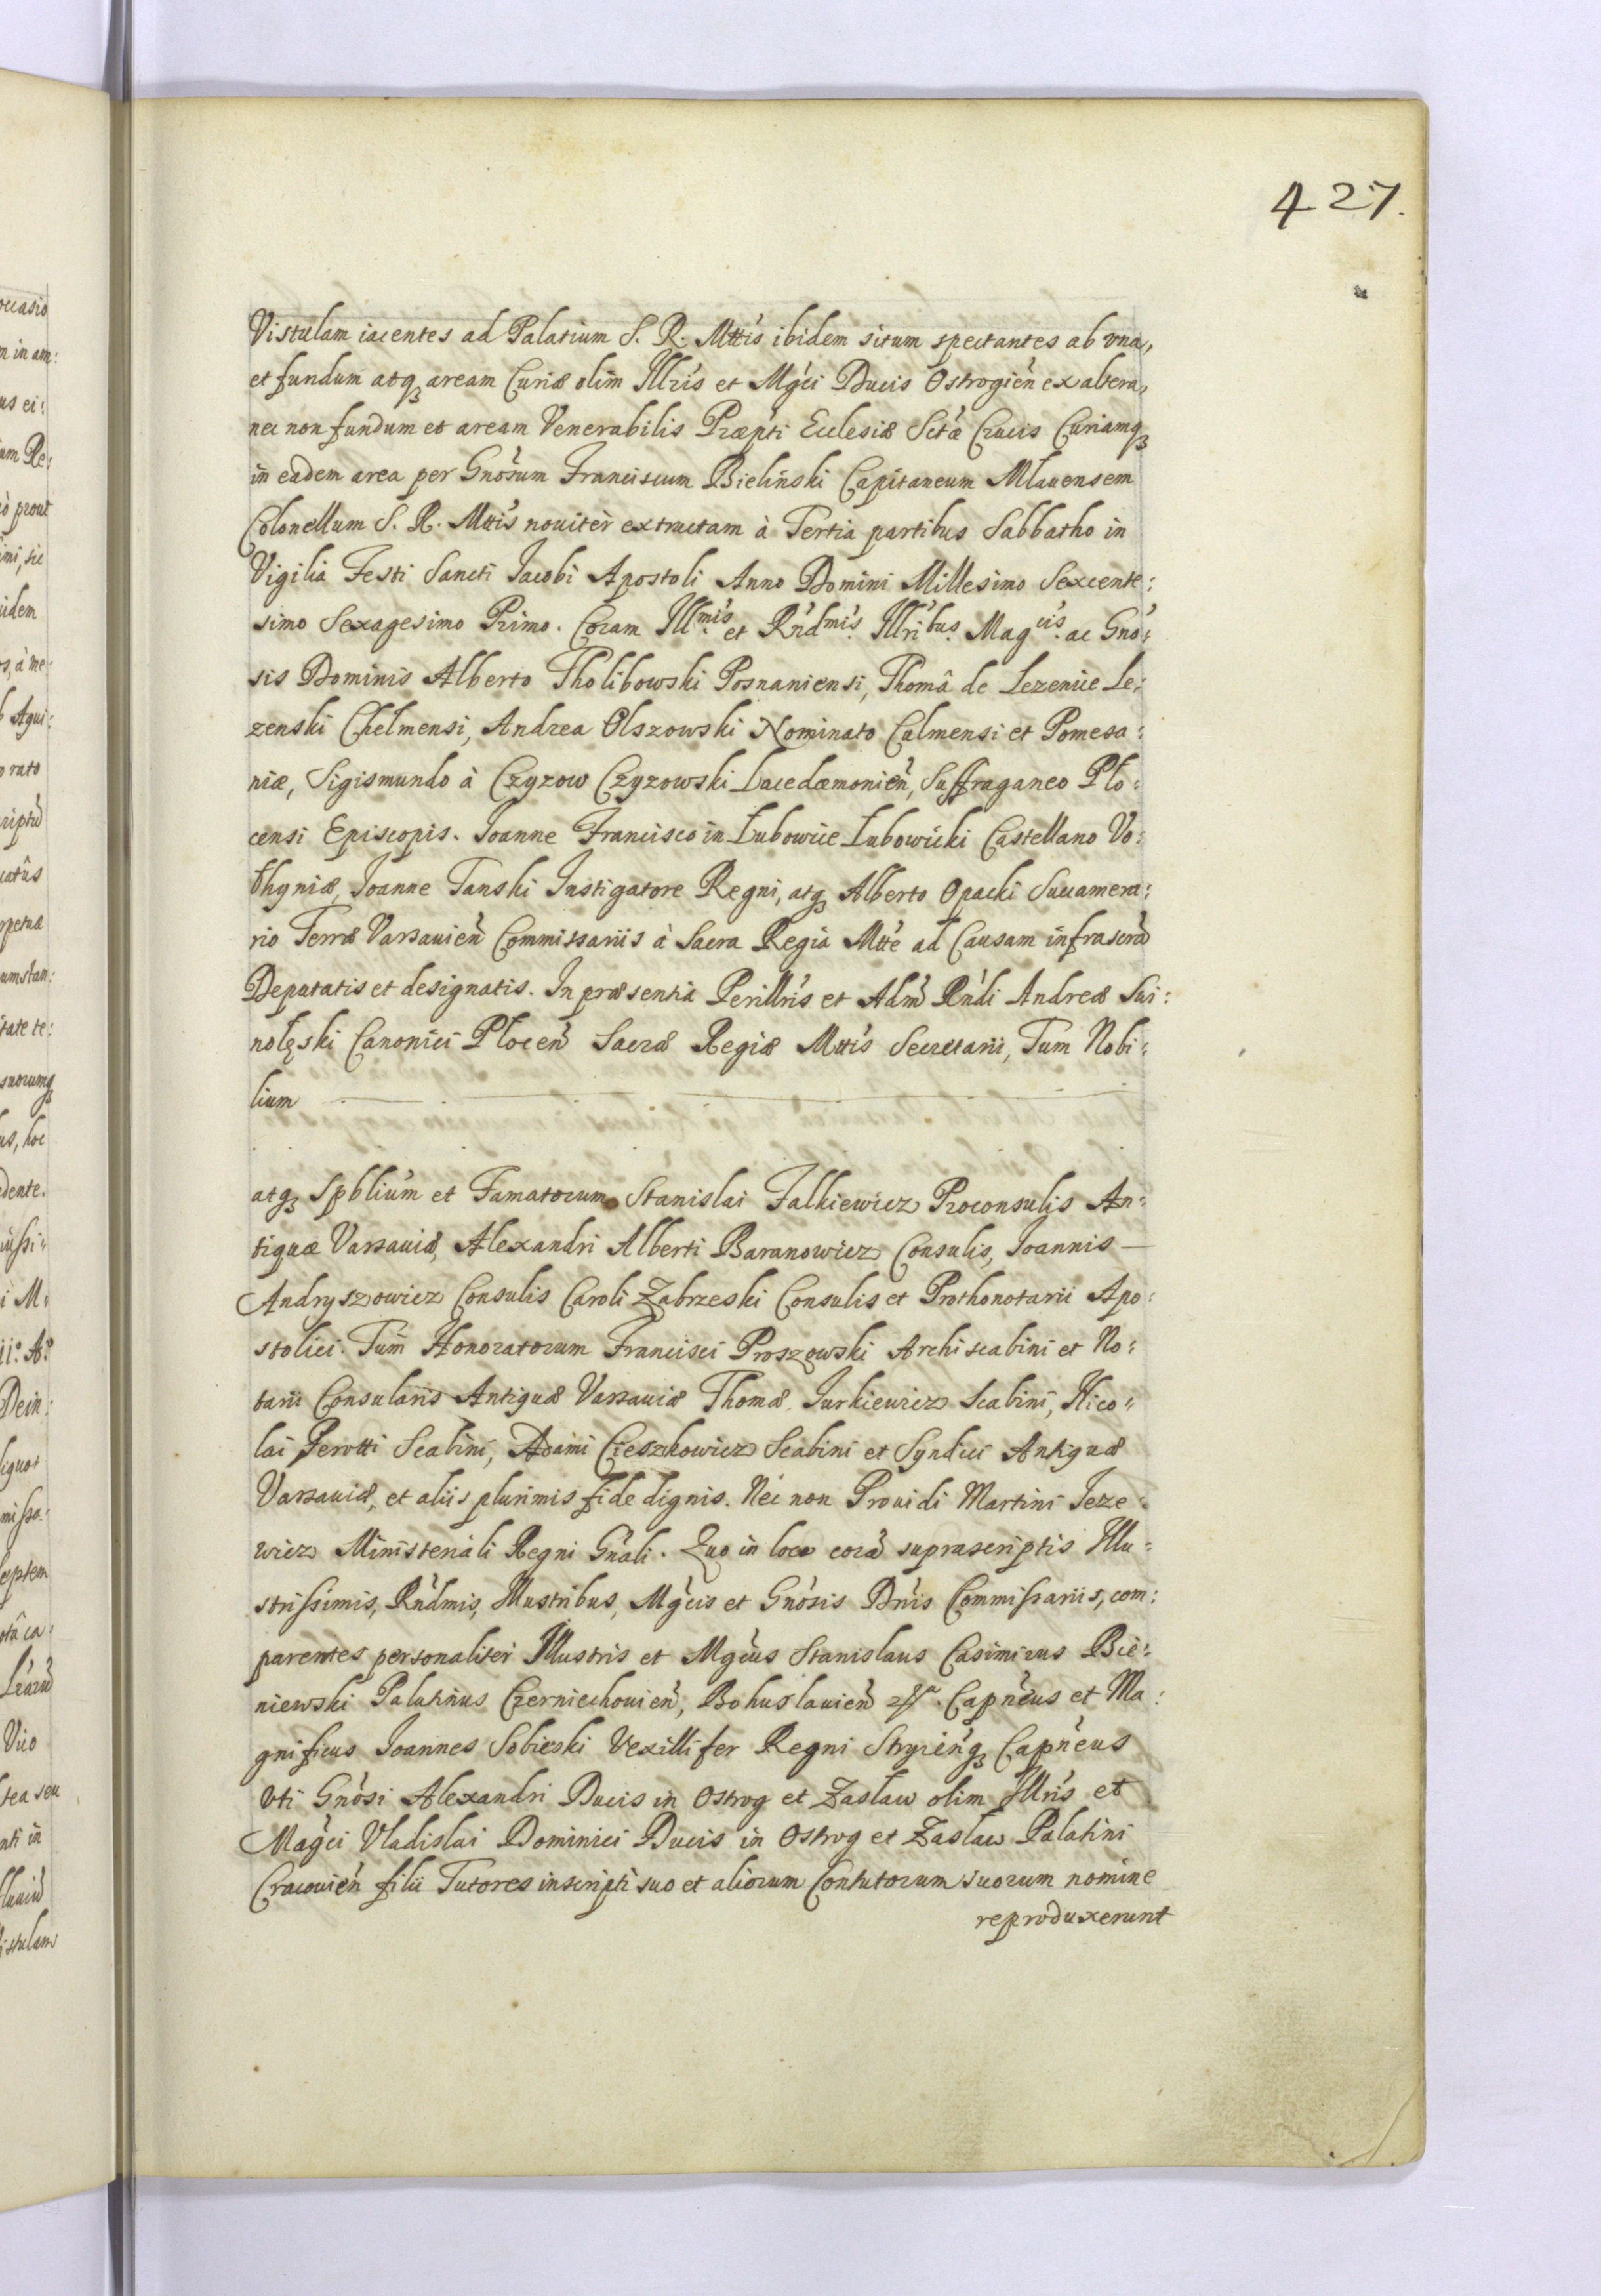 427.
Vistulam iacentes ad Palatium S. R. Mttis ibidem situm spectantes ab vna,
et fundum atqꝫ aream Curiæ olim Illris et Mgci Ducis Ostrogien̄ ex altera,
nec non fundum et aream Venerabilis Præpti Ecclesiæ Sctæ Crucis Curiamqꝫ
in eadem area per Gnosum Franciscum Bielinski Capitaneum Mlauensem
Colonellum S. R. Mttis nouitèr extructam à Tertia partibus Sabbatho in
Vigilia Festi Sancti Iacobi Apostoli Anno Domini Millesimo Sexcente:
simo Sexagesimo Primo. Coram Illmis et Rndmis Illribus Magcis ac Gno:
sis Dominis Alberto Tholibowski Posnaniensi, Thomâ de Lezenice Le:
zenski Chelmensi, Andrea Olszowski Nominato Culmensi et Pomesa:
niæ, Sigismundo à Czyzow Czyzowski Lacedæmonien̄, Suffraganeo Plo:
censi Episcopis. Ioanne Francisco in Łubowice Łubowicki Castellano Vo:
lhyniæ, Ioanne Tanski Instigatore Regni, atqꝫ Alberto Opacki Succamera:
rio Terræ Varsauien̄ Commissariis à Sacra Regia Mtte ad Causam infrascrā
Deputatis et designatis. In præsentia Perillris et Adm̄ Rndi Andreæ Swi:
nolęski Canonici Plocen̄ Sacræ Regiæ Mttis Secretarii, Tum Nobi:
lium
atqꝫ Spblium et Famatorum Stanislai Falkiewicz Proconsulis An:
tiquæ Varsauiæ, Alexandri Alberti Baranowicz Consulis, Ioannis —
Andryszowicz Consulis Caroli Zabrzeski Consulis et Prothonotarii Apo:
stolici. Tum Honoratorum Francisci Proszowski Archiscabini et No:
tarii Consularis Antiquæ Varsauiæ Thomæ Iurkiewicz Scabini, Nico:
lai Perotti Scabini, Adami Cieszkowicz Scabini et Syndici Antiquæ
Varsauiæ, et aliis plurimis fide dignis. Nec non Prouidi Martini Ieze:
wicz Ministeriali Regni Gnali. Quo in loco corā suprascriptis Illu:
strissimis, Rndmis, Illustribus, Mgcis et Gnosis Dnis Commissariis, com:
parentes personaliter Illustris et Mgcus Stanislaus Casimirus Bie:
niewski Palatinus Czerniechouien̄, Bohuslauien̄ Capneus et Ma:
gnificus Ioannes Sobieski Vexillifer Regni Stryienqꝫ Capneus
Vti Gnosi Alexandri Ducis in Ostrog et Zasław olim Illris et
Magci Vladislai Dominici Ducis in Ostrog et Zasław Palatini
Cracouien̄ filii Tutores inscripti suo et aliorum Contutorum suorum nomine
reproduxerunt